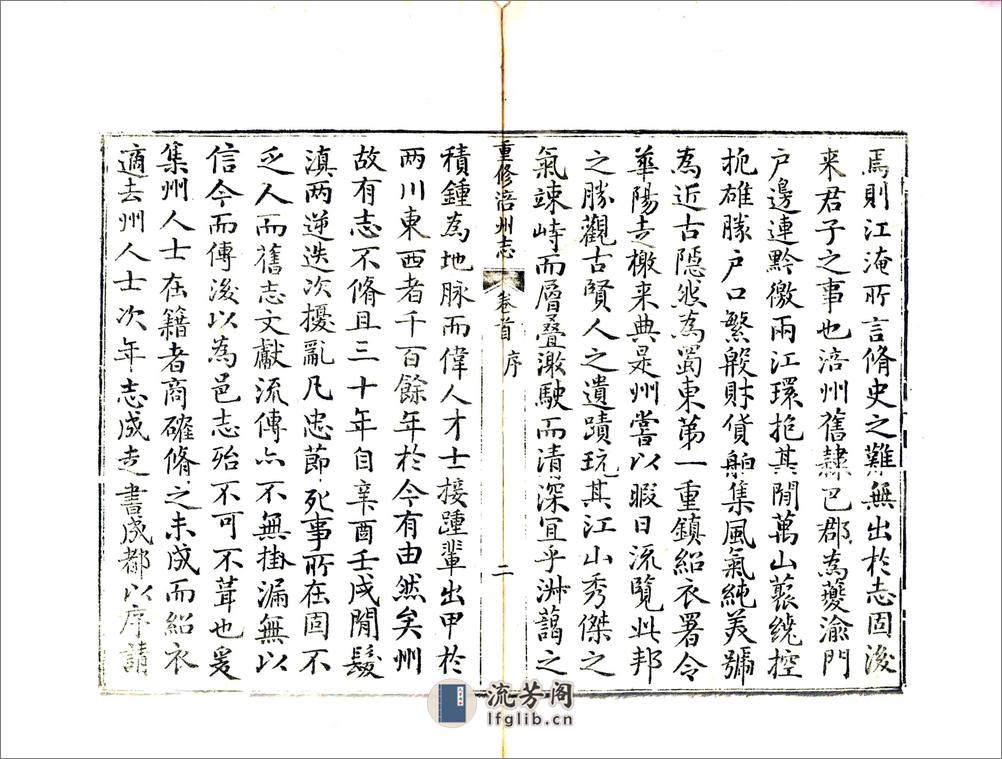 焉則江淹所言脩史之難無出於志固後
来君子之事也涪州舊隸巴郡為夔渝門
户邊連黔徼兩江環抱其閒萬山叢繞控
扼雄勝户口繁殷財貨舶集風氣純美號
為近古隱然為蜀東第一重鎮紹衣署令
華陽走檄来典是州嘗以暇日流覽此邦
之勝觀古賢人之遺蹟玩其江山秀傑之
氣竦峙而層叠潋駛而清深冝乎淋藹之
重修涪州志
卷首 序
二
積鍾為地脉而偉人才士接踵輩出甲於
两川東西者千百餘年於今有由然矣州
故有志不脩且三十年自辛酉壬戌閒髮
滇两逆迭次擾亂凡忠節死事所在固不
乏人而舊志文獻流傳亦不無掛漏無以
信今而傳後以為邑志殆不可不葺也爰
集州人士在籍者商確脩之未成而紹衣
適去州人士次年志成走書成都以序請
流芳阁
lfglib.cn